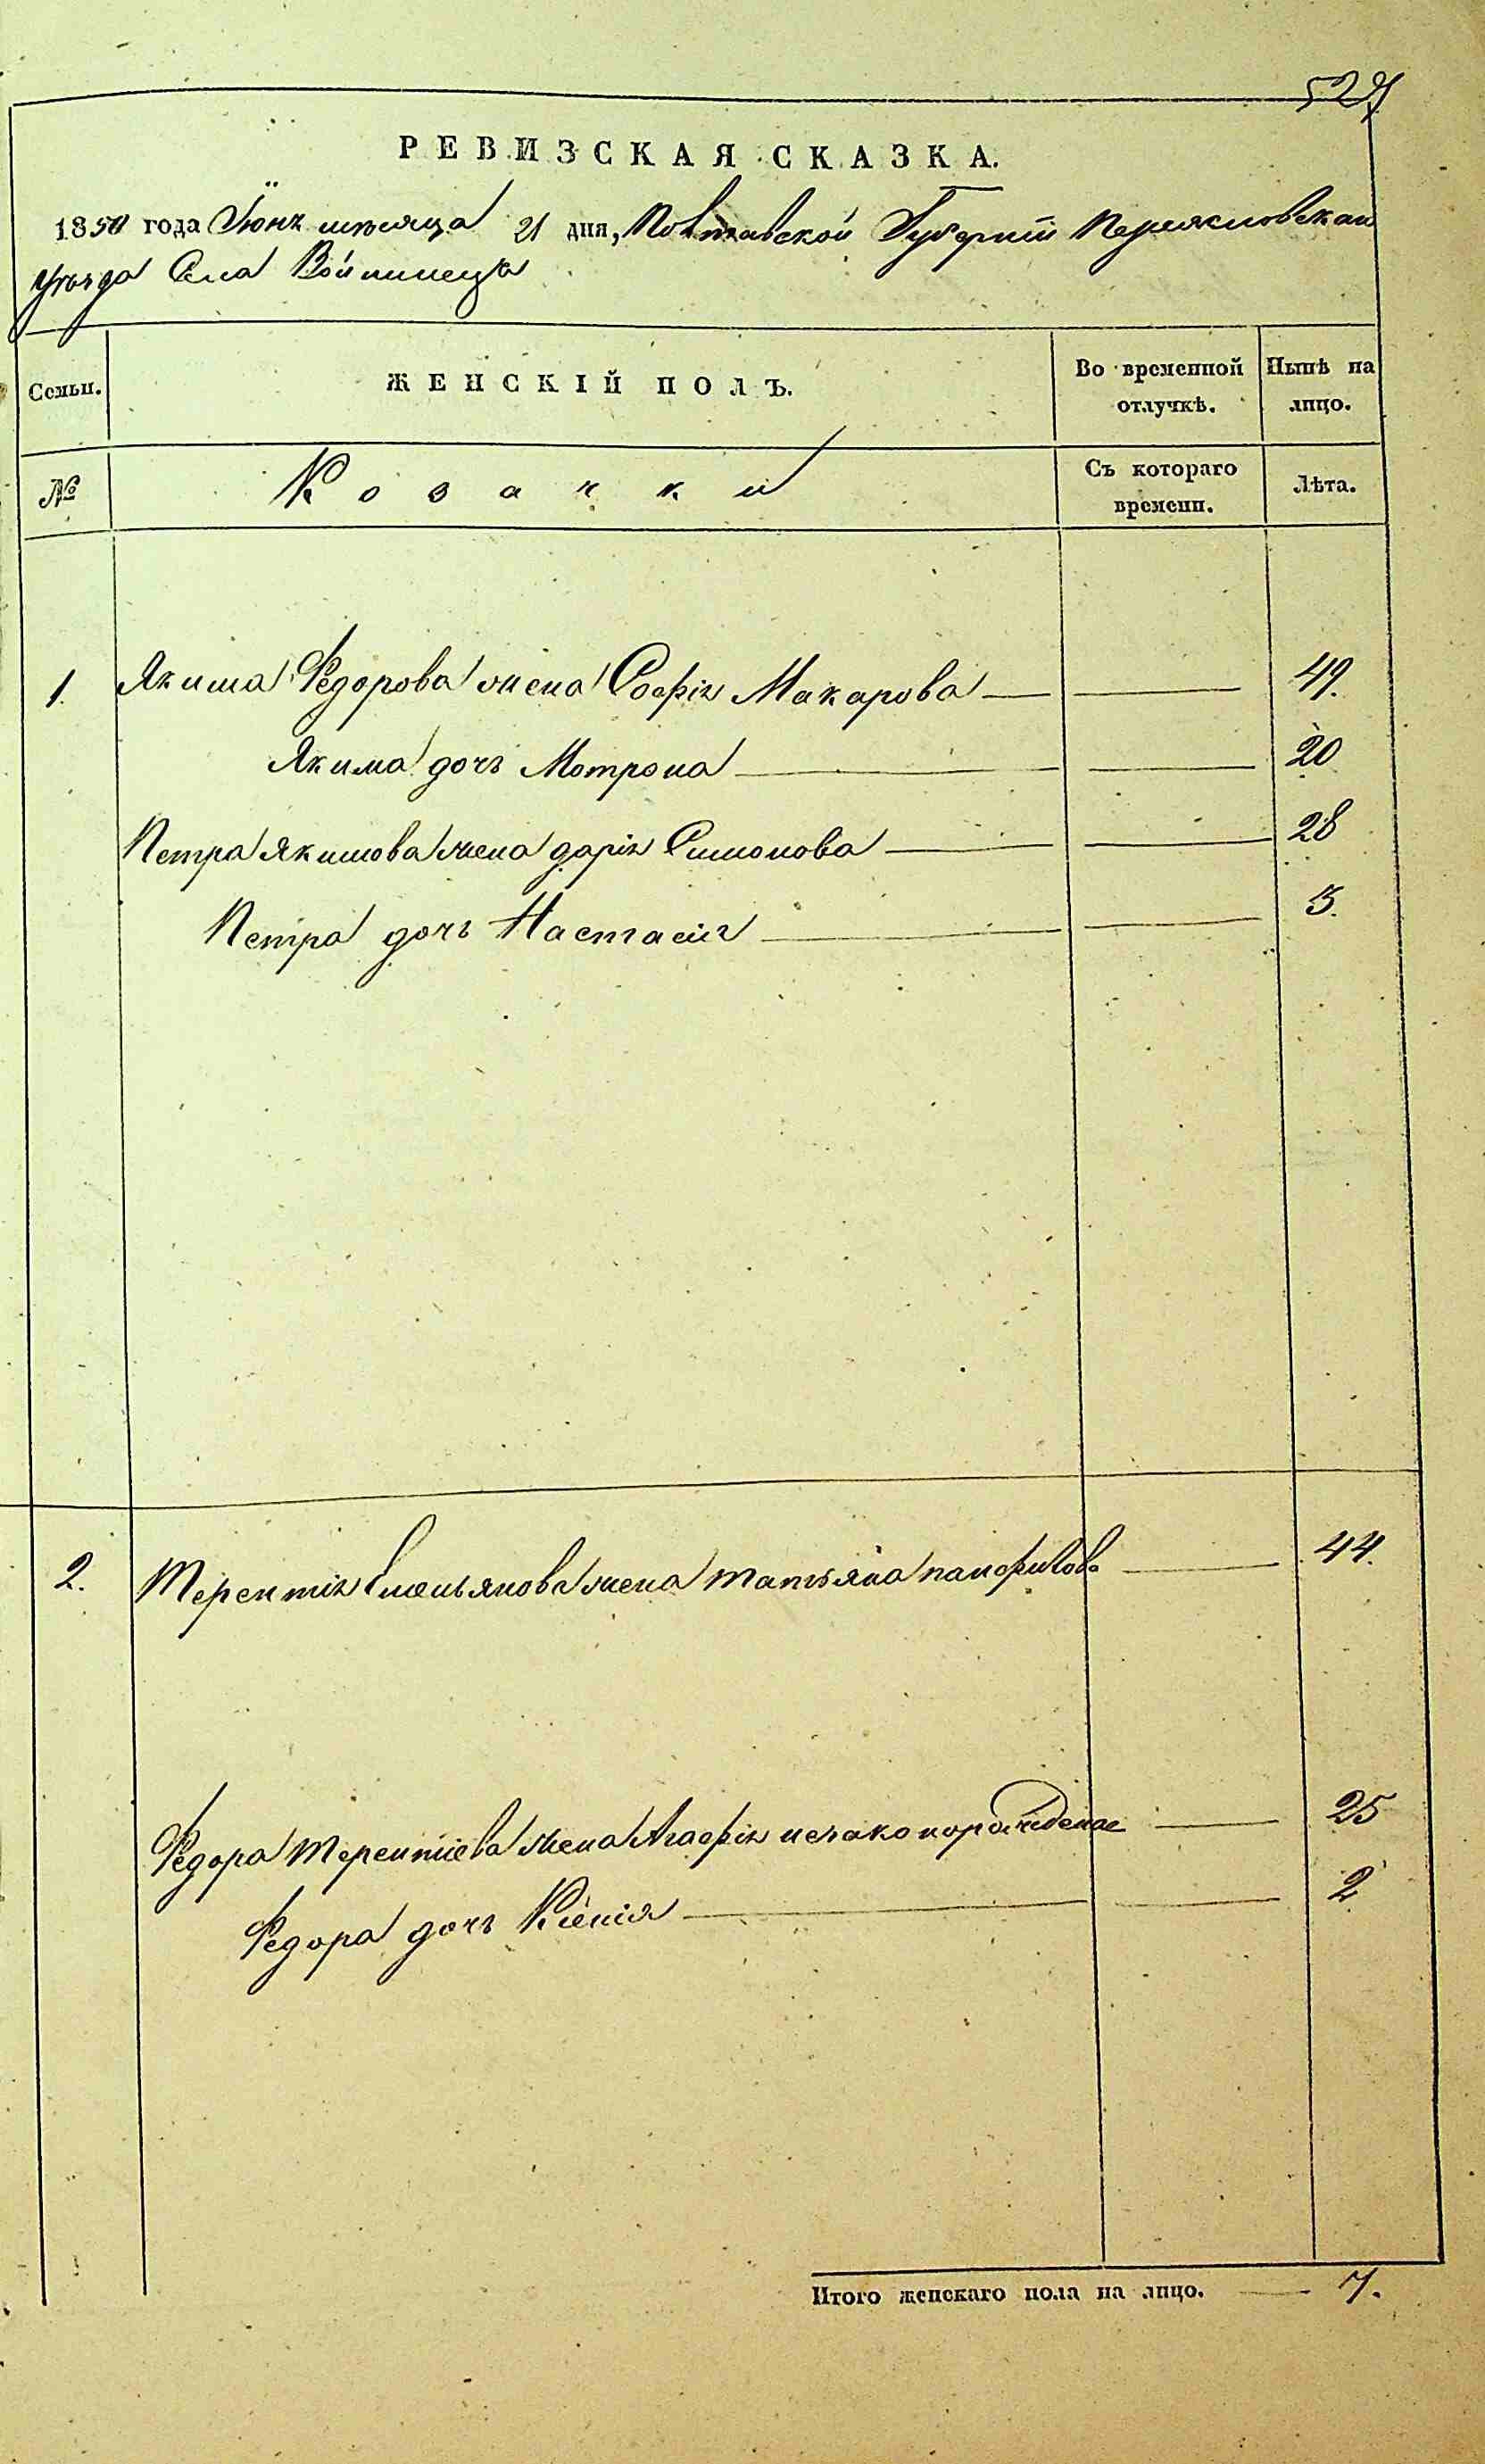 527
РЕВИЗСКАЯ СКАЗКА.
1850 года Іюня мѣсяца 21 дня, Полтавской Губерніи Переясловскаго
уѣзда Села Войтинецъ
Семьи. ЖЕНСКІЙ ПОЛЪ. Во временной отлучкѣ. Нынѣ на лицо.
№ Козачки Съ котораго времени. Лѣта.
1. Якима Федорова жена Софія Макарова — — 49.
Якима дочь Мотрона — — 20
Петра Якимова жена Дарія Симонова — — 28
Петра дочь Настасія — — 5.
2. Терентія Емельянова жена Татьяна Панфилова — 44.
Федора Терентіева жена Агафія незаконорожденая — 25
Федора дочь Ксенія — — 2
Итого женскаго пола на лицо. — 7.